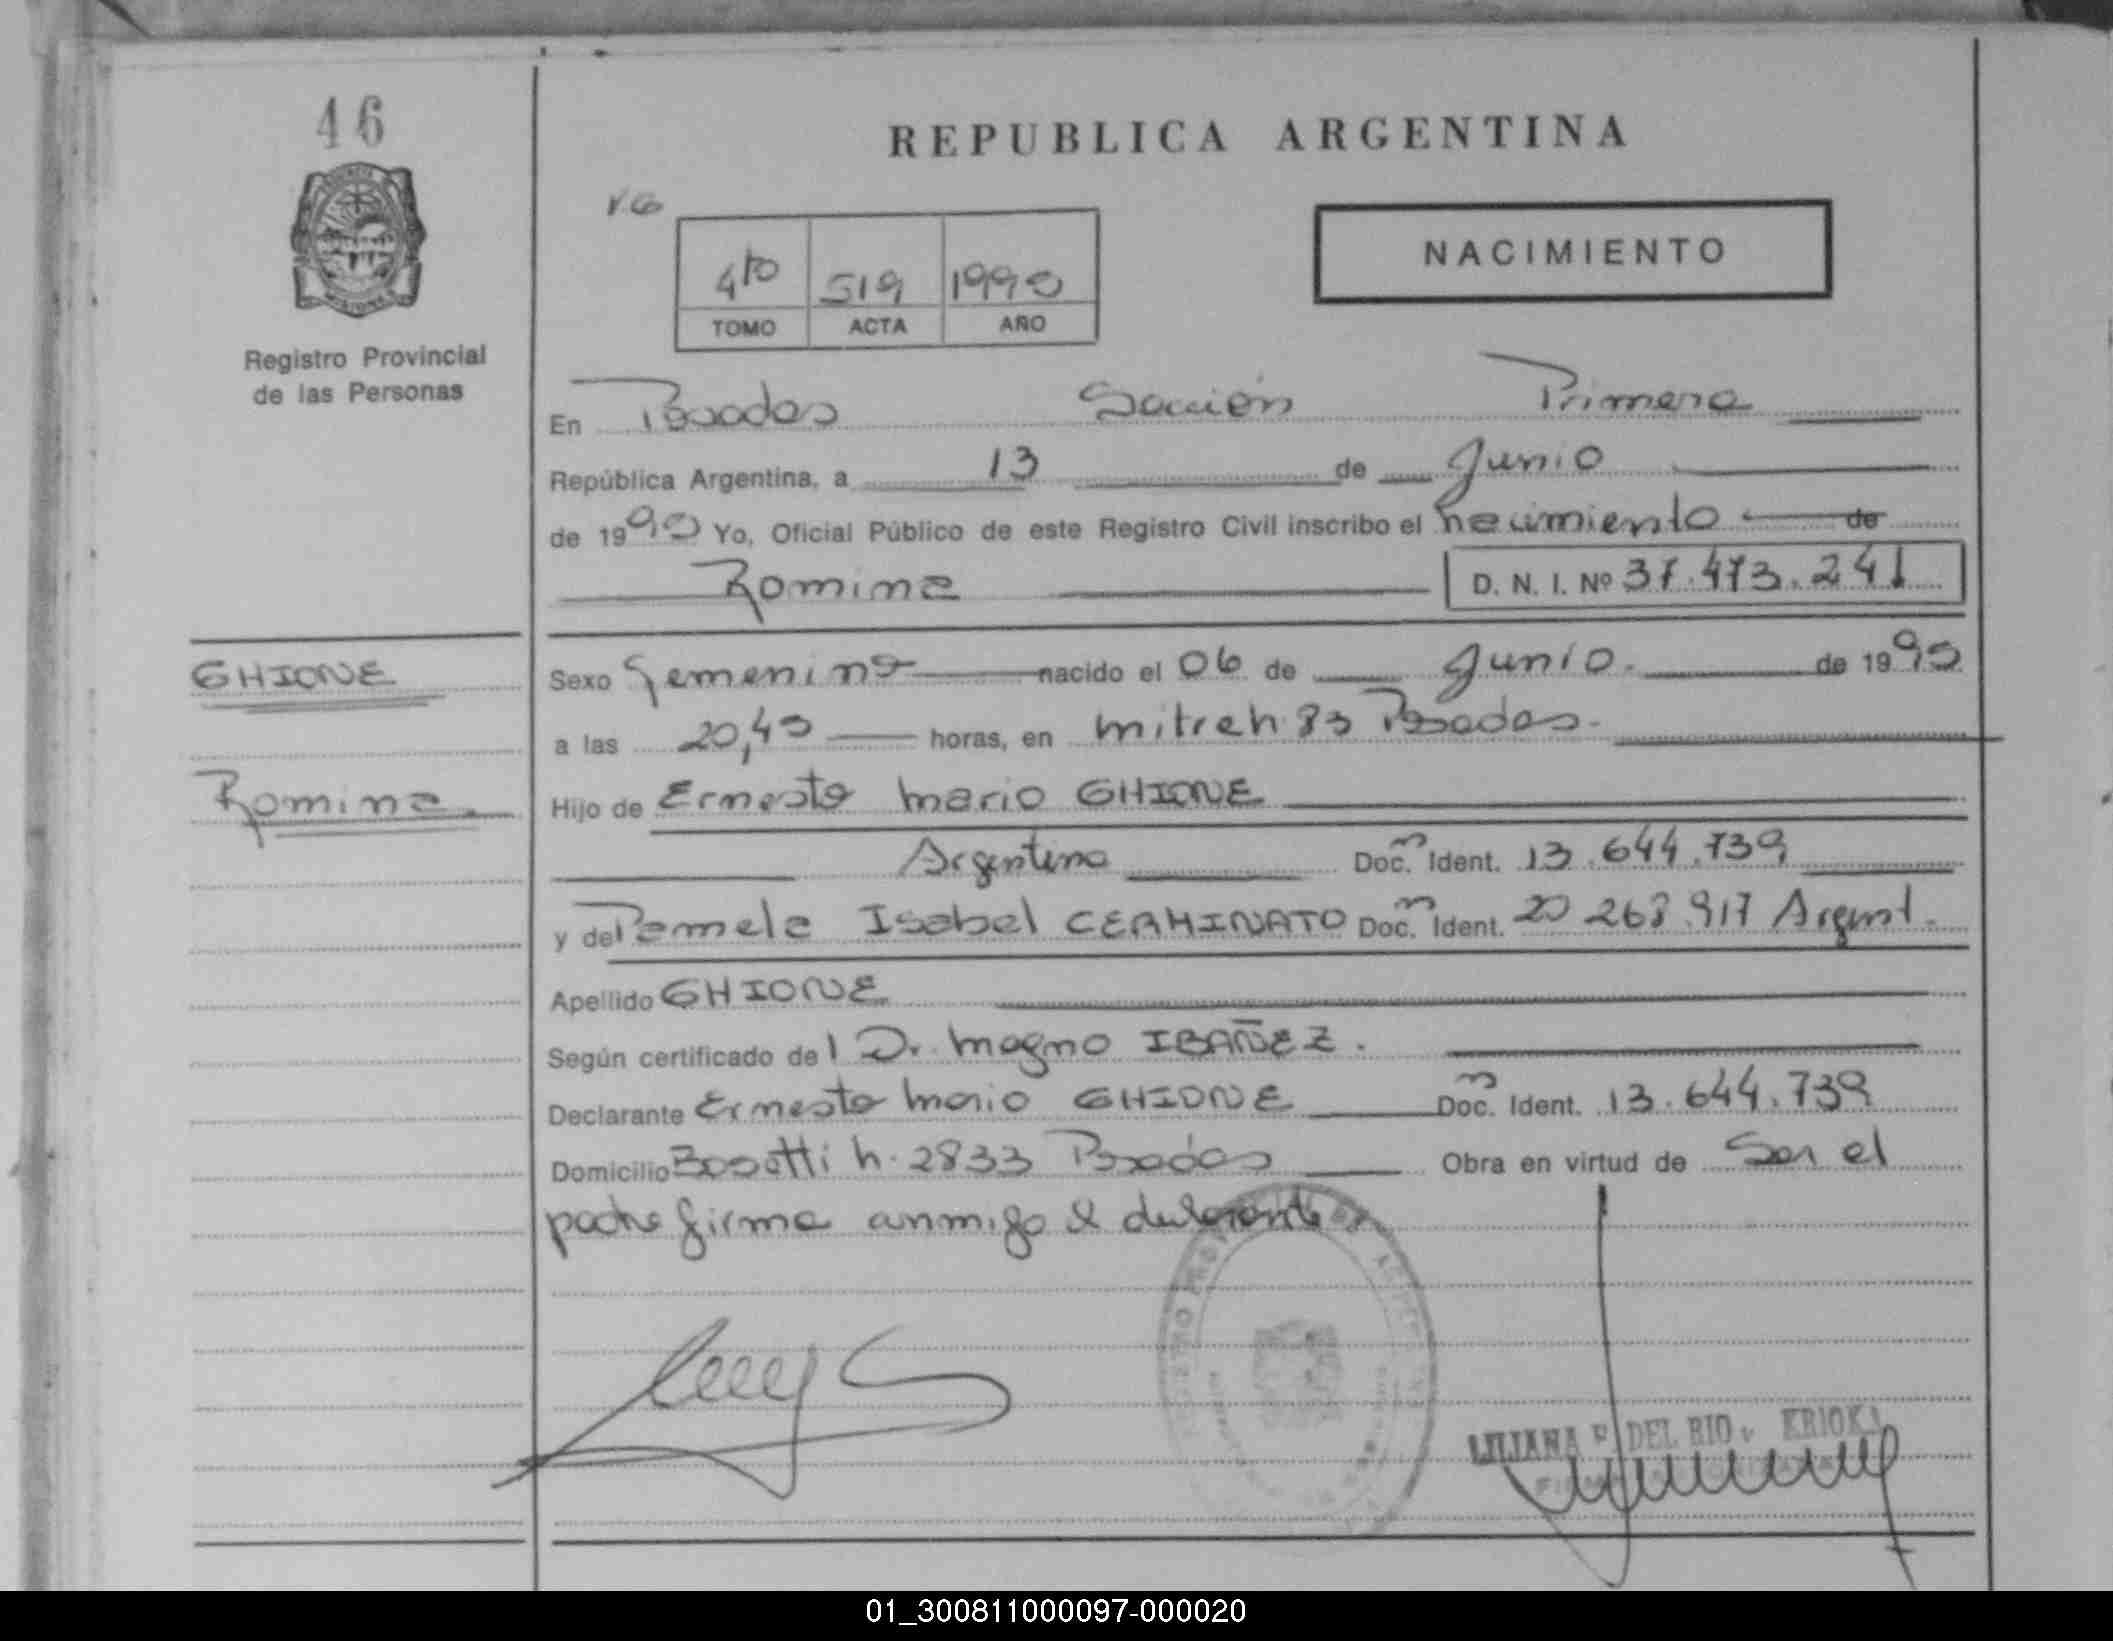 46
REPUBLICA ARGENTINA
NACIMIENTO
4to 519 1990
TOMO ACTA AÑO
Registro Provincial
de las Personas
En Posadas Sección Primera
República Argentina, a 13 de Junio
de 1990 Yo, Oficial Público de este Registro Civil inscribo el nacimiento de
Romina D. N. I. Nº 37.473.241
GHIONE
Sexo femenino nacido el 06 de Junio. de 1990
a las 20,45 horas, en mitre n 83 Posadas.
Romina
Hijo de Ernesto Mario GHIONE
Argentino Doc. Ident. 13.644.739
y de Pamela Isabel CERMINATO Doc. Ident. 20 268.917 Argent.
Apellido GHIONE
Según certificado del Dr. Magno IBAÑEZ.
Declarante Ernesto Mario GHIONE Doc. Ident. 13.644.739
Domicilio Bosetti n. 2833 Posadas Obra en virtud de Ser el
padre firma conmigo el declarante
LILIANA DEL RIO
01_300811000097-000020